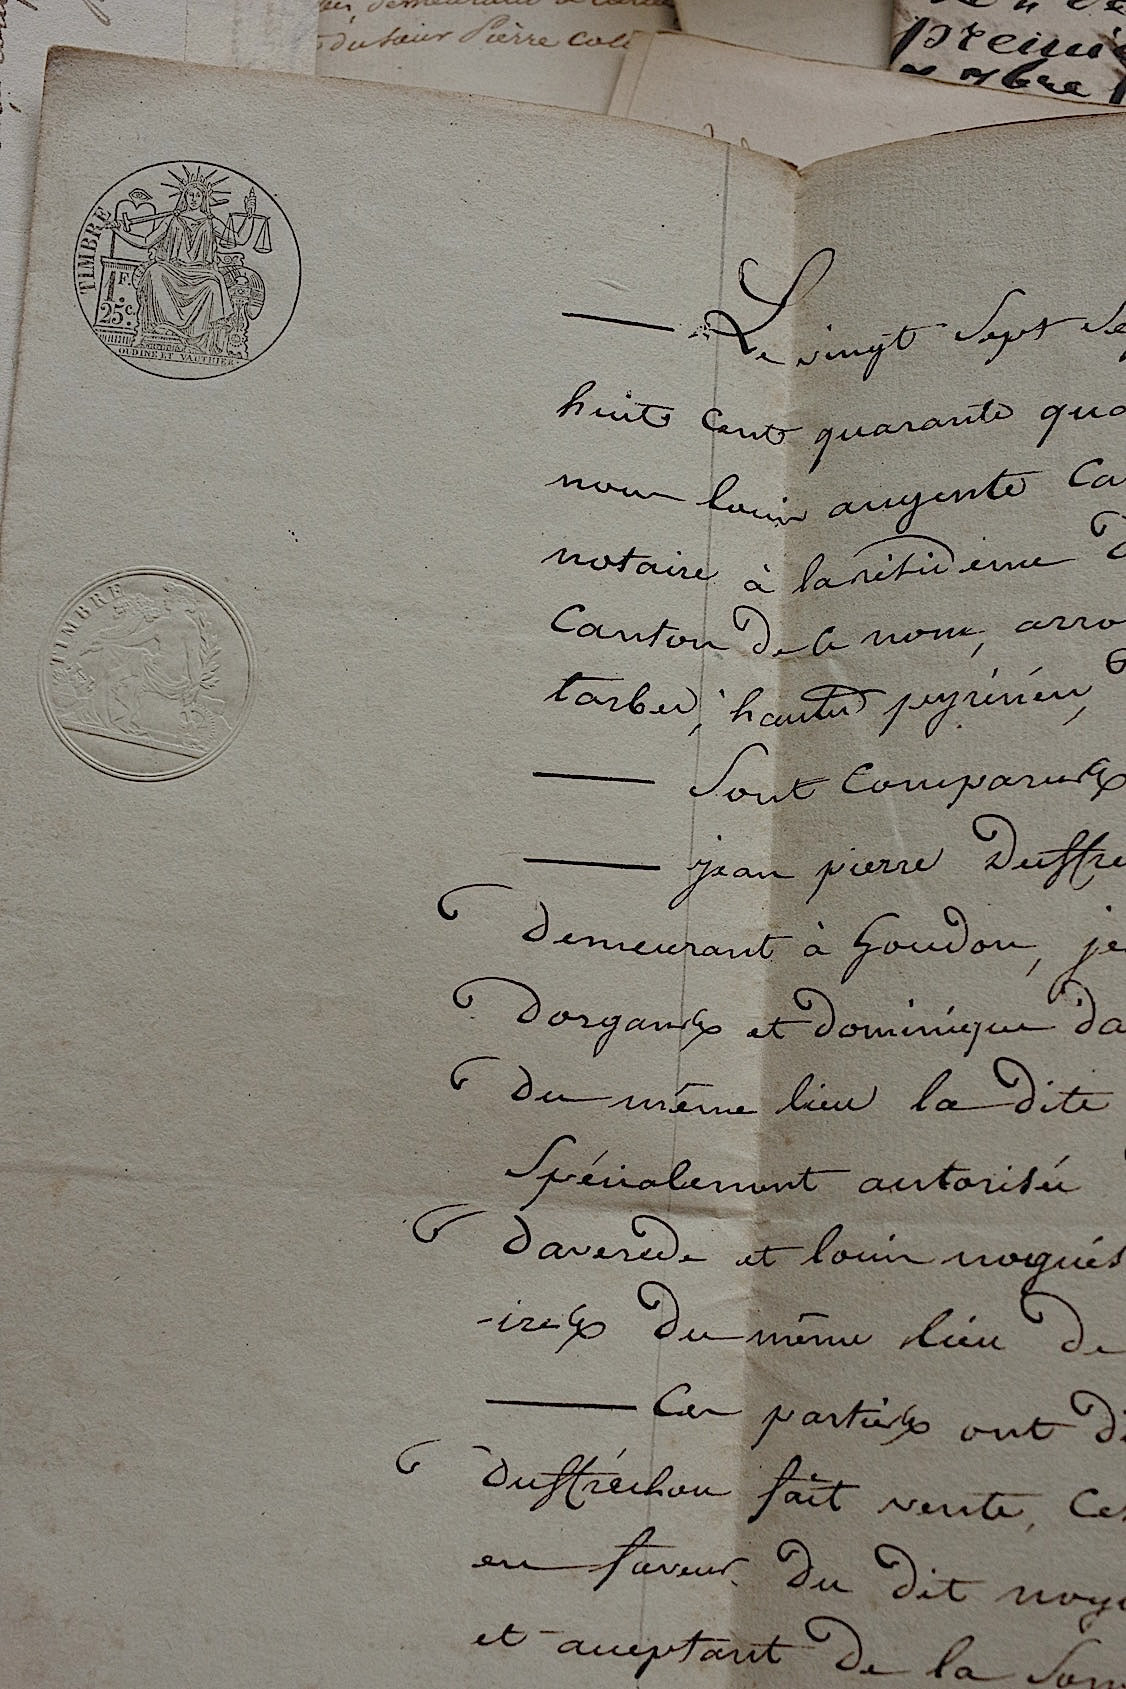 du sieur Pierre
premi
TIMBRE
1 F.
25c.
OUDINE ET VAUTHIER
TIMBRE
Le vingt Sept Se
huit cent quarante qua
nous louis auguste Ca
notaire à la résidence d
Canton de la même, arro
tarbes, hautes pyrénées, d
Sont Comparus
jean pierre Duffre
demeurant à Goudon, je
dorgans et dominique da
du même lieu la dite
Spécialement autorisée
daverede et louis nogués
-ires du même lieu de
Ces parties ont di
duffréchou fait vente, Ces
en faveur du dit nogu
et acceptant de la Som